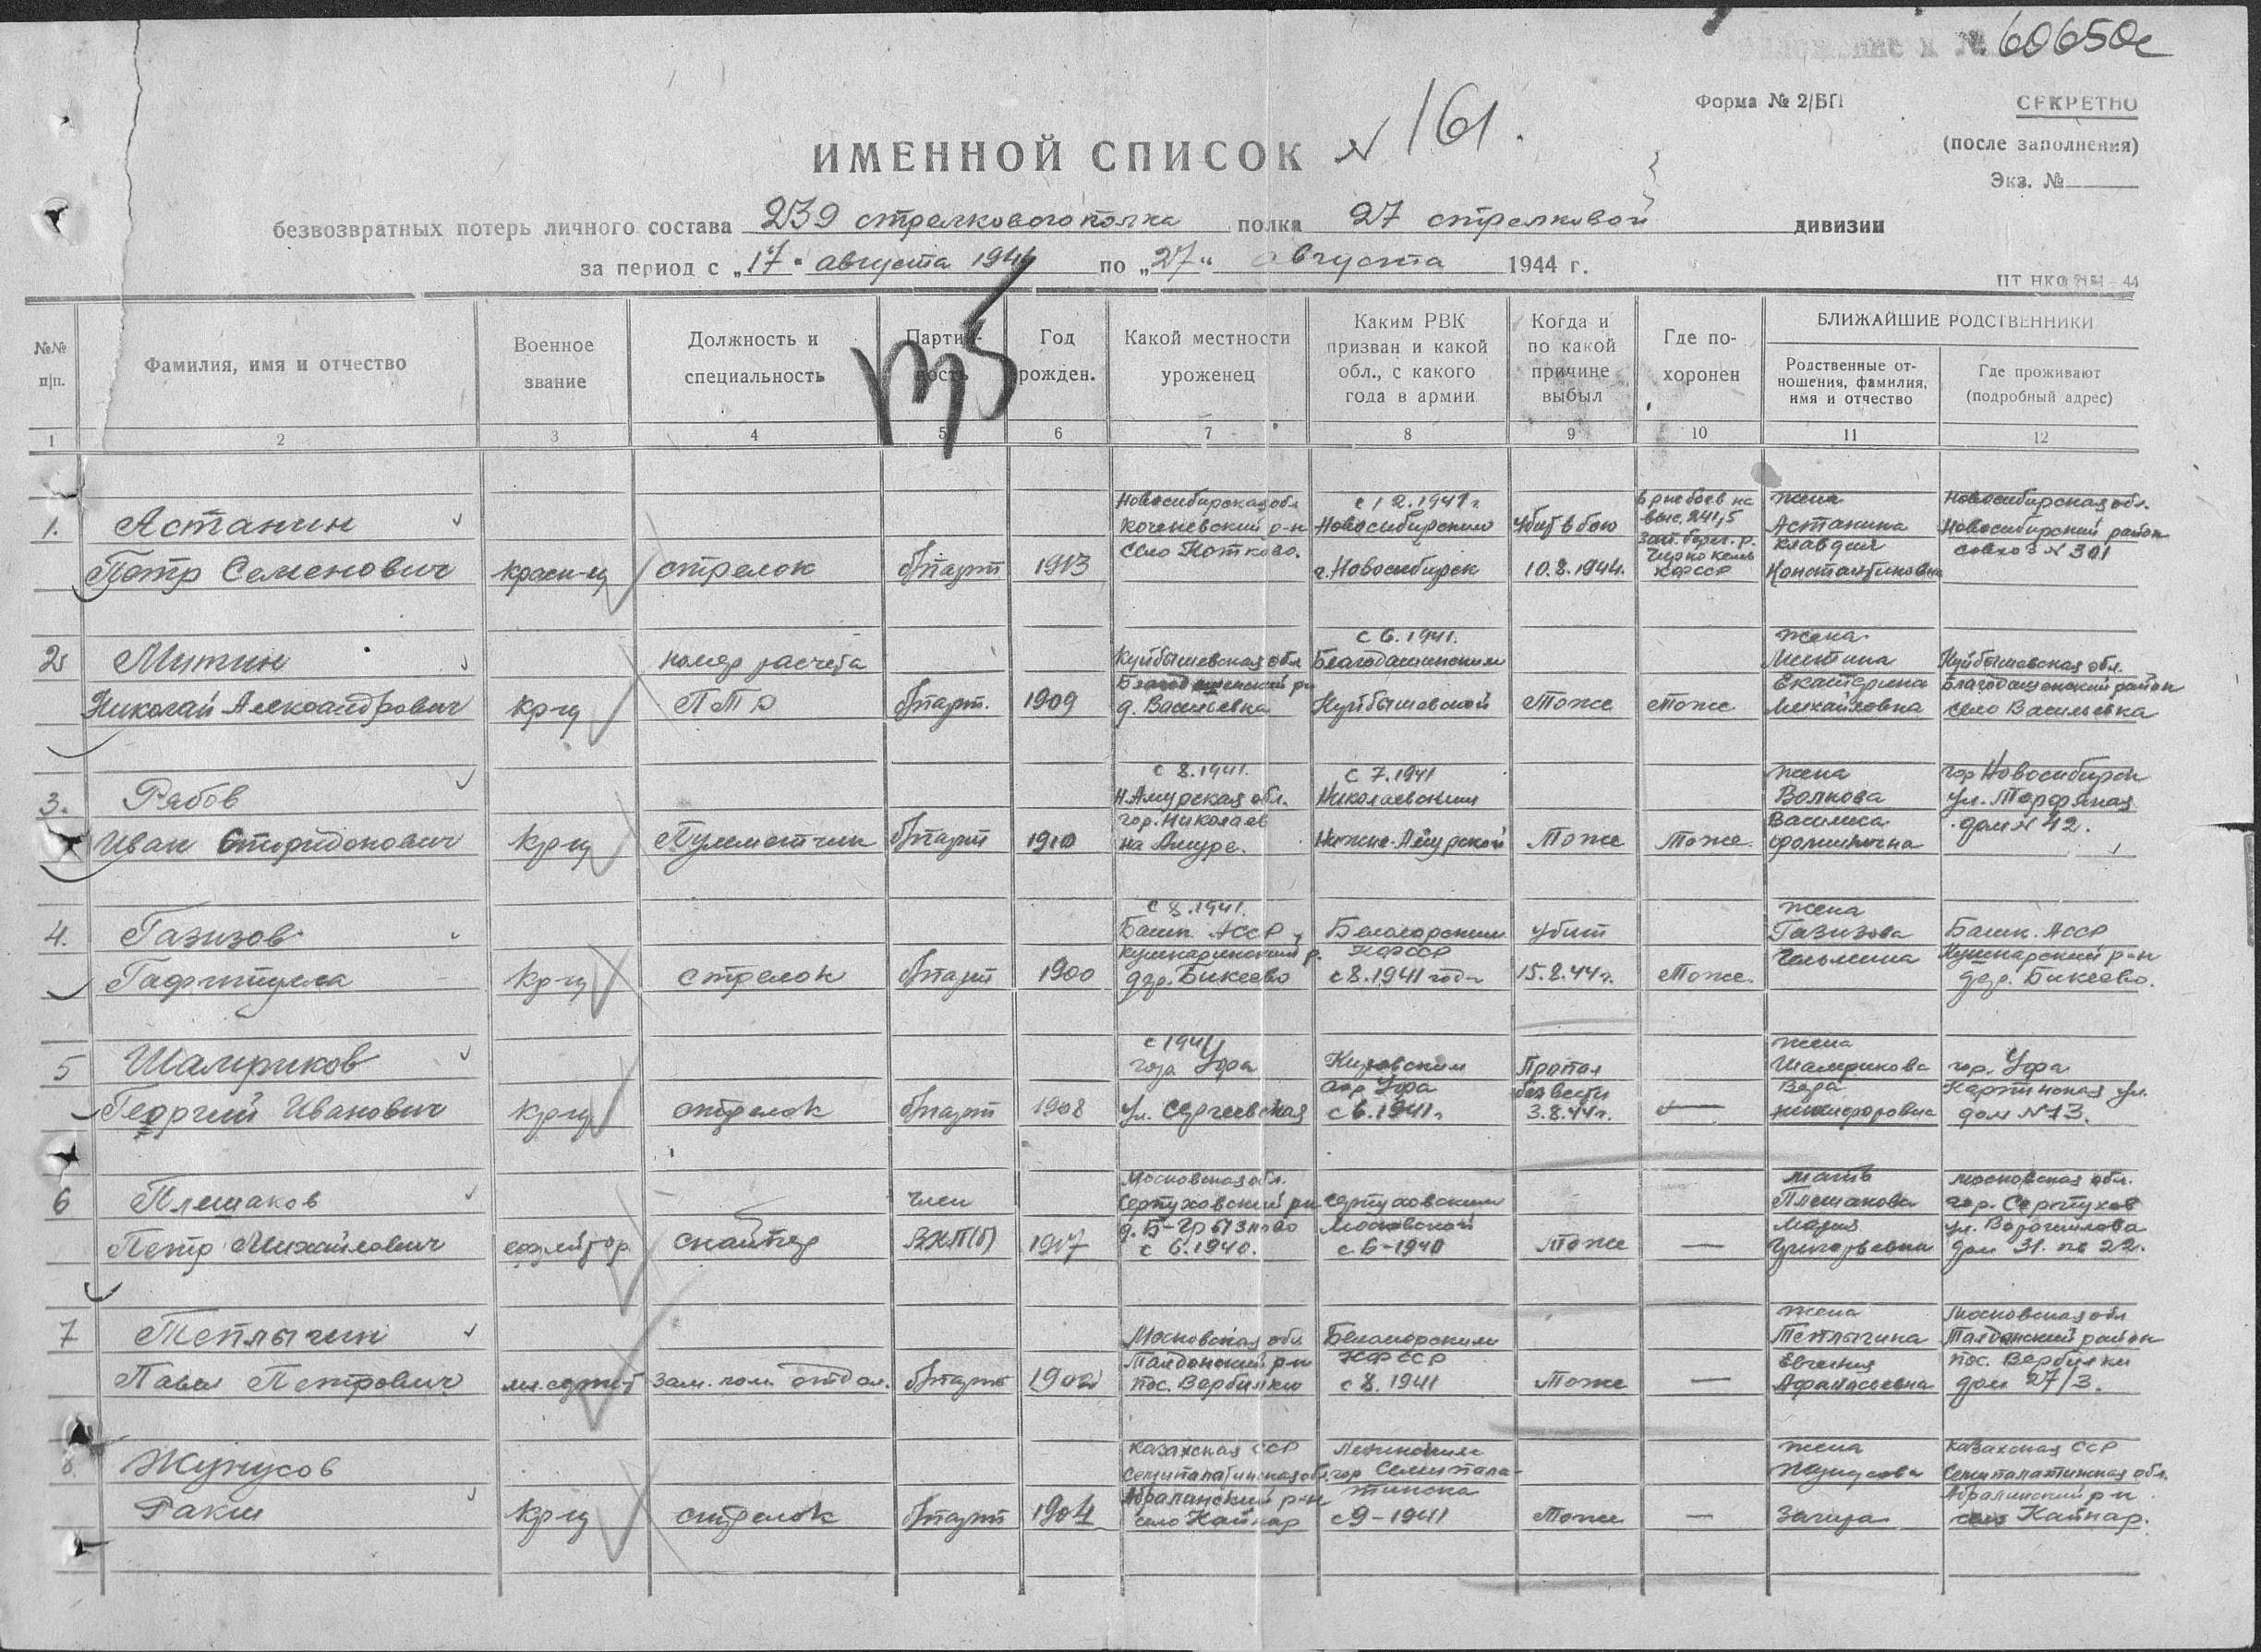 60650с
Форма № 2/БП
СЕКРЕТНО
(после заполнения)
Экз. №
ИМЕННОЙ СПИСОК № 161.
безвозвратных потерь личного состава 239 стрелкового полка полка 27 стрелковой дивизии
за период с „17“ августа 1944 по „27“ августа 1944 г.
№№ п|п.
Фамилия, имя и отчество
Военное звание
Должность и специальность
Партийность
Год рожден.
Какой местности уроженец
Каким РВК призван и какой обл., с какого года в армии
Когда и по какой причине выбыл
Где похоронен
БЛИЖАЙШИЕ РОДСТВЕННИКИ
Родственные отношения, фамилия, имя и отчество
Где проживают (подробный адрес)
1 2 3 4 5 6 7 8 9 10 11 12
Новосибирская обл с 12.1941г жена Новосибирская обл.
1. Астанин Коченевский р-н Новосибирским убит в бою выс. 241,5 Астанина Новосибирский район
село Клавдия совхоз № 301
Петр Семенович красн-ец стрелок б/парт 1913 г. Новосибирск 10.8.1944. КФССР Константиновна
с 6.1941. жена
2 Митин номер расчета Куйбышевская обл Митина Куйбышевская обл.
Екатерина
Николай Александрович кр-ец ПТР б/парт. 1909 д. Васильевка Куйбышевской Тоже Тоже Михайловна село Васильевка
с 8.1941. с 7.1941 жена гор Новосибирск
3. Рябов Н.Амурская обл. Николаевским Волкова ул. Торфяная
гор. Николаев Василиса дом № 42.
Иван Спиридонович кр-ец Пулеметчик б/парт 1910 на Амуре. Нижне-Амурской Тоже Тоже
с 8.1941. жена
4. Газизов Башк. АССР Беломорским убит Газизова Башк. АССР
КФССР
кр-ец стрелок б/парт 1900 дер. Бикеево с 8.1941 года 15.8.44г. Тоже. дер. Бикеево.
с 1941 жена
5 Шамриков Уфа Кировским Пропал Шамрикова гор. Уфа
гор Уфа без вести Вера
Георгий Иванович кр-ец стрелок б/парт 1908 ул. Сергеевская с 6.1941г 3.8.44г. — Никифоровна дом № 73.
Московская обл. мать Московская обл.
6 Плешаков член Серпуховский р-н Серпуховским Плешакова гор. Серпухов
Московской Мария ул. Ворошилова
Петр Михайлович ефрейтор снайпер ВКП(б) 1917 с 6.1940. с 6-1940 тоже — Григорьевна дом 31. кв 22.
жена Московская обл
7 Теплыгин Московская обл Беломорским Теплыгина Талдомский район
Талдомский р-н КФССР Евгения пос. Вербилки
Павел Петрович мл.сержант зам. ком. отдел. б/парт 1902 пос. Вербилки с 8.1941 Тоже — Афанасьевна дом 27/3.
Казахская ССР Ленинским жена Казахская ССР
8. Жунусов Семипалатинская обл. гор Семипала- Жунусова Семипалатинская обл.
Абралинский р-н тинска Абралинский р-н
Ракиш кр-ец стрелок б/парт 1904 село Кайнар с 9-1941 Тоже — село Кайнар.